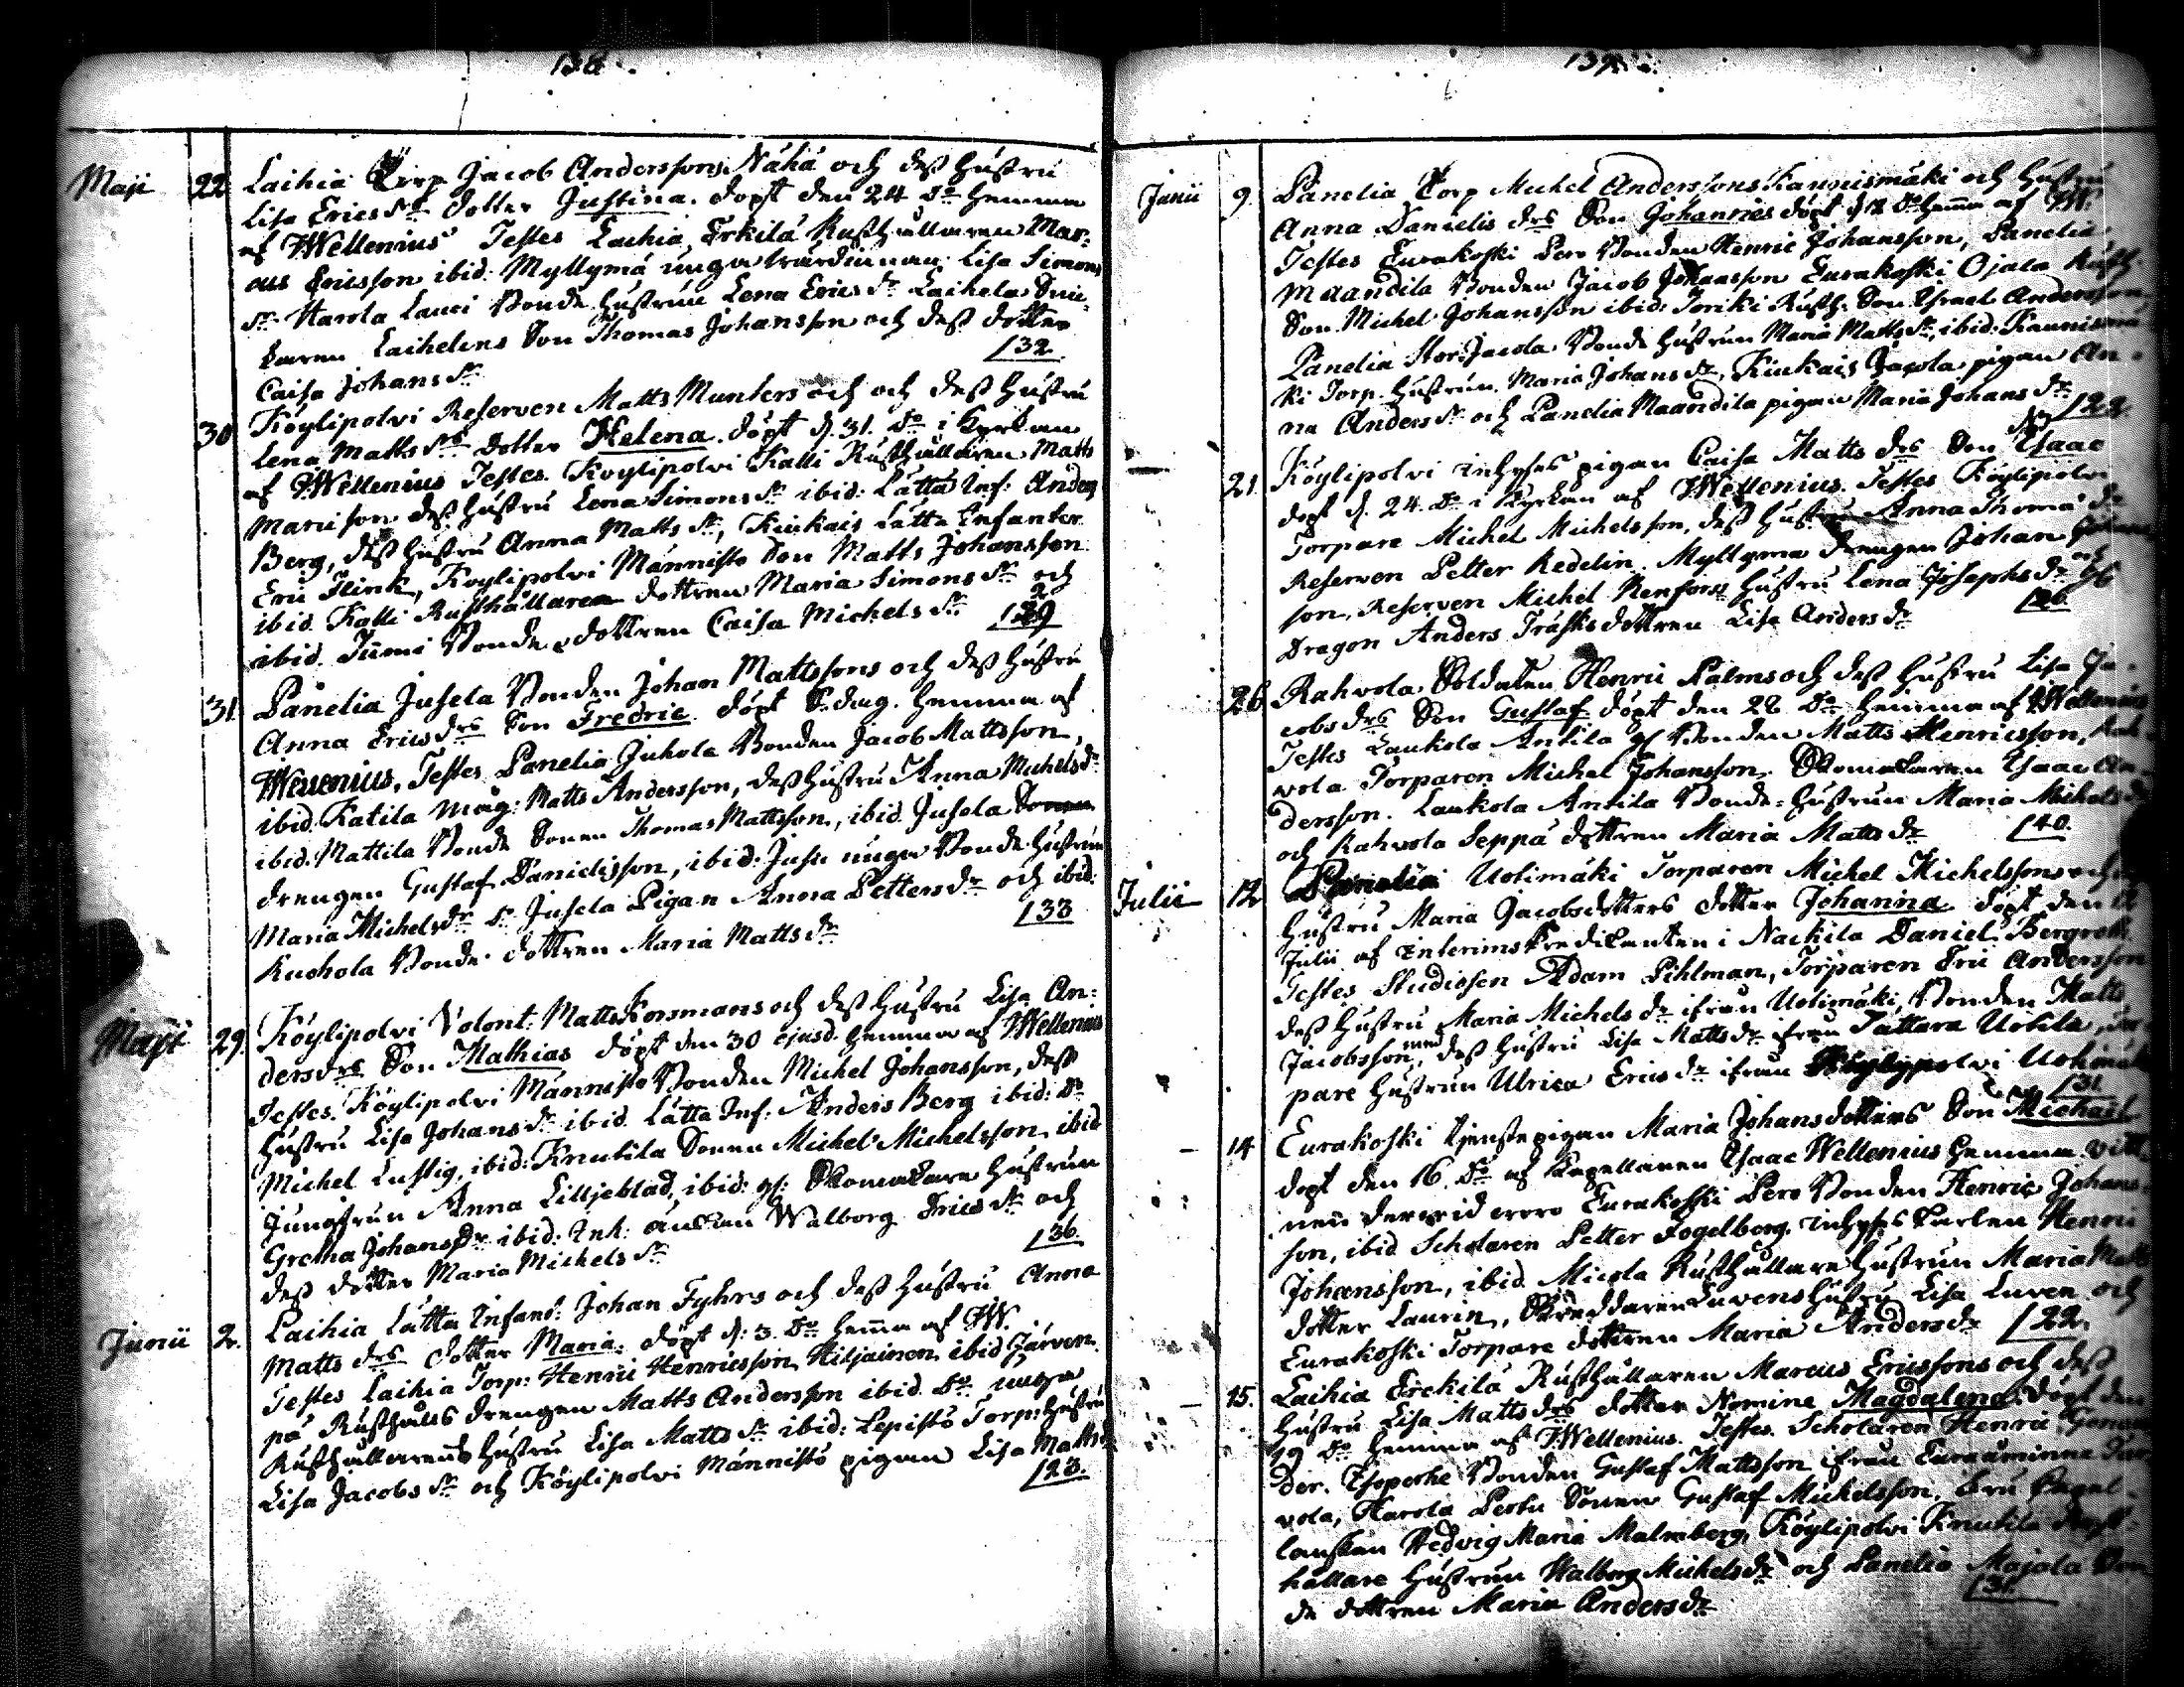 138.
Maji 22. Laihia Torp Jacob Anderssons Nähä och dess hustru
Lisa Ericsdrs dotter Justina. döpt den 24 Do hemma
af IWellenius Testes Laihia, Erkilä Rusthållaren Mar=
cus Ericsson ibid: Myllymä unga wärdinnan Lisa Simons
dr Harola Lauri Bonde hustrun Lena Erics dr Laihela
karen Laihelens Son Thomas Johansson och dess dotter
Caisa Johans dr 132.
30 Köylipolvi Reserven Matts Munters och dess hustru
Lena Matts drs dotter Helena. döpt d. 31. Do i Kyrkan
af IWellenius Testes. Köylipolvi Kalli Rusthållaren Matts
Mariisson dess hustru Lena Simons dr ibid: Lätta Inf: Anders
Berg, dess hustru Anna Matts dr, Kiukais Lätta Infanter
Eric Flink, Köylipolvi Männistö Son Matts Johansson
ibid. Kalli Rusthållaren dottren Maria Simons dr och
ibid. Tumi Bonde dottren Caisa Michels dr 129
31. Panelia Jusela Bonden Johan Mattssons och dess hustru
Anna Erics drs Son Fredric döpt S. dag. hemma af
IWellenius, Testes Panelia Juhola Bonden Jacob Mattsson,
ibid. Katila Måg: Matts Andersson, dess hustru Anna Michelsdr
ibid. Mattila Bonde Sonen Thomas Mattsson, ibid. Jusela
drengen Gustaf Danielsson, ibid: Jusu unga Bonde hustrun
Maria Michels dr Jusela Pigan Anna Petters dr och ibid:
Kuohola Bonde dottren Maria Matts dr 133
Maji 29. Köylipolvi Volont: Matts Korsmans och dess hustru Lisa An=
ders drs Son Mathias döpt den 30 ejusd. hemma af IWellenius
Testes. Köylipolvi Männistö Bonden Michel Johansson, dess
hustru Lisa Johans dr ibid. Lätta Inf: Anders Berg ibid: Do
Michel Lustig, ibid: Knutila Sonen Michel Michelsson, ibid
Jungfrun Anna Liljeblad, ibid: gl: Skomakare hustrun
Gretha Johans Dr ibid: Inh: änkan Walborg Erics dr och
dess dotter Maria Michels dr 136.
Junii 2. Laihia Lätta Infant: Johan Fyhrs och dess hustru Anna
Matts drs dotter Maria. döpt d: 3. Do hema af IW.
Testes Laihia Torp: Henric Henricsson Hiljainen, ibid Järven
pä Rusthålls drengen Matts Andersson ibid. Do unga
Rusthållarens hustru Lisa Matts dr ibid: Lepistö Torp: hustru
Lisa Jacobs dr och Köylipolvi Männistö pigan Lisa Matts dr
123.
139.
Junii 9. Panelia Torp Michel Anderssons Kaunismäki och hustru
Anna Daniels drs Son Johannes döpt d 12 Do hema af IW.
Testes Eurakoski Pero Bonden Henric Johansson, Panelia
Maandila Bonden Jacob Johansson Eurakoski Ojala Rusth=
Son Michel Johansson ibid: Soriki Rusth: Son Israel Andersson,
Panelia Stor-Jacola Bonde hustrun Maria Matts dr, ibid: Kaunismä
ki Torp. hustrun Maria Johans dr, Kiukais Jacola pigan An=
na Anders dr och Panelia Maandila pigan Maria Johans dr
122
21. Köylipolvi inhyses pigan Caisa Matts drs Son Isaac
döpt d. 24. Do i Kyrkan af IWellenius. Testes Köylipolvi
Torpare Michel Michelsson, dess hustru Anna Thoma dr
Reserven Petter Redelin. Myllyma drengen Johan
son, Reserven Michel Renfors hustru Lena Josephs dr och
Dragon Anders Träsks dottren Lisa Anders dr 126
26. Rahvola Soldaten Henric Palms och dess hustru Lisa Ja=
cobs drs Son Gustaf döpt den 28 Do hemma af IWellenius
Testes Laukola Antila gl Bonden Matts Henricsson, Rah=
vola Torparen Michel Johansson. Skomakaren Isaac An=
dersson. Laukola Antila Bonde=hustrun Maria Michels dr
och Rahvola Seppä dottren Maria Matts dr 140.
Julii 12. Panelia Uotimäki Torparen Michel Michelssons och
hustru Maria Jacobsdotters dotter Johanna döpt den 12
Julii af Interims Predikanten i Nackila Daniel Bergroth
Testes Studiosen Adam Pihlman, Torparen Eric Andersson
dess hustru Maria Michels dr ifrån Uotimäki, Bonden Matts
Jacobsson, med dess hustru Lisa Matts dr ifrån Tattara Uotila,
pare hustrun Ulrica Erics dr ifrån Köylypolvi Uotimäki
131.
14 Eurakoski tjenstepigan Maria Johansdotters Son Michael
döpt den 16. Do af Kapellanen Isaac Wellenius hemma. vitt=
nen dervid woro Eurakoski Pero Bonden Henric Johans=
son, ibid Scholaren Petter Fogelberg. inhyses karlen Henric
Johansson, ibid Micola Rusthållare hustrun Maria Matts
dotter Laurin, Skräddaren Luvens hustru Lisa Luven och
Eurakoski Torpare dottren Maria Anders dr 122.
15. Laihia Erckilä Rusthållaren Marcus Ericssons och dess
hustru Lisa Matts drs dotter Nomine Magdalena. döpt den
19 Do hemma af IWellenius. Testes. Scholaren Henric
der. Bonden Gustaf Mattsson ifrån Euraåminne
vola, Harola Perhu Sonen Gustaf Michelsson, Fru Capel=
lanskan Hedvig Maria Malmberg, Köylipolvi Knutila Rust=
hållare hustrun Walborg Michels dr och Panelia Majala Bon
de dottren Maria Anders dr 131.